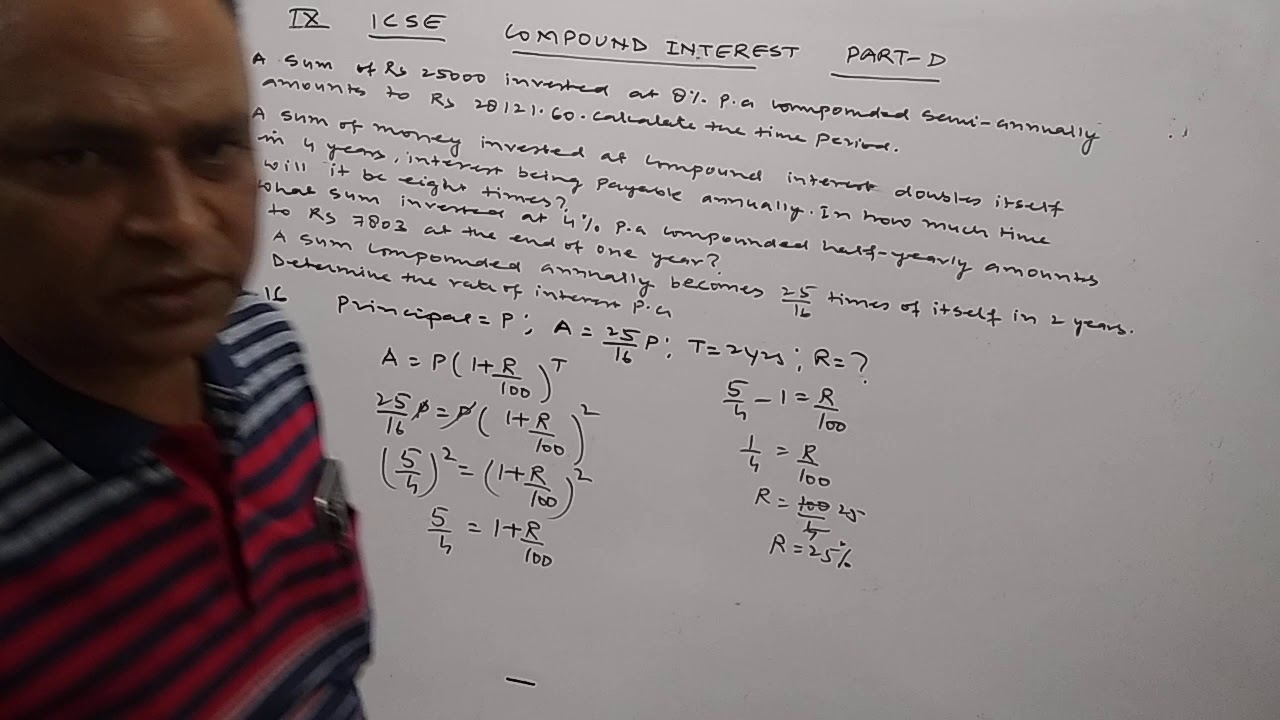 IX ICSE COMPOUND INTEREST PART-D
A sum of Rs 25000 invested at 8% p.a compounded semi-annually
amounts to Rs 28121.60. Calculate the time period.
A sum of money invested at compound interest doubles itself
in 4 years, interest being payable annually. In how much time
will it be eight times?
What sum invested at 4% p.a compounded half-yearly amounts
to Rs 7803 at the end of one year?
A sum compounded annually becomes 25/16 times of itself in 2 years.
Determine the rate of interest p.a
16 Principal = P; A = 25/16 P; T = 2yrs; R = ?
A = P(1+R/100)^T
25/16 P = P(1+R/100)^2
(5/4)^2 = (1+R/100)^2
5/4 = 1+R/100
5/4 - 1 = R/100
1/4 = R/100
R = 100/4 25
R = 25%